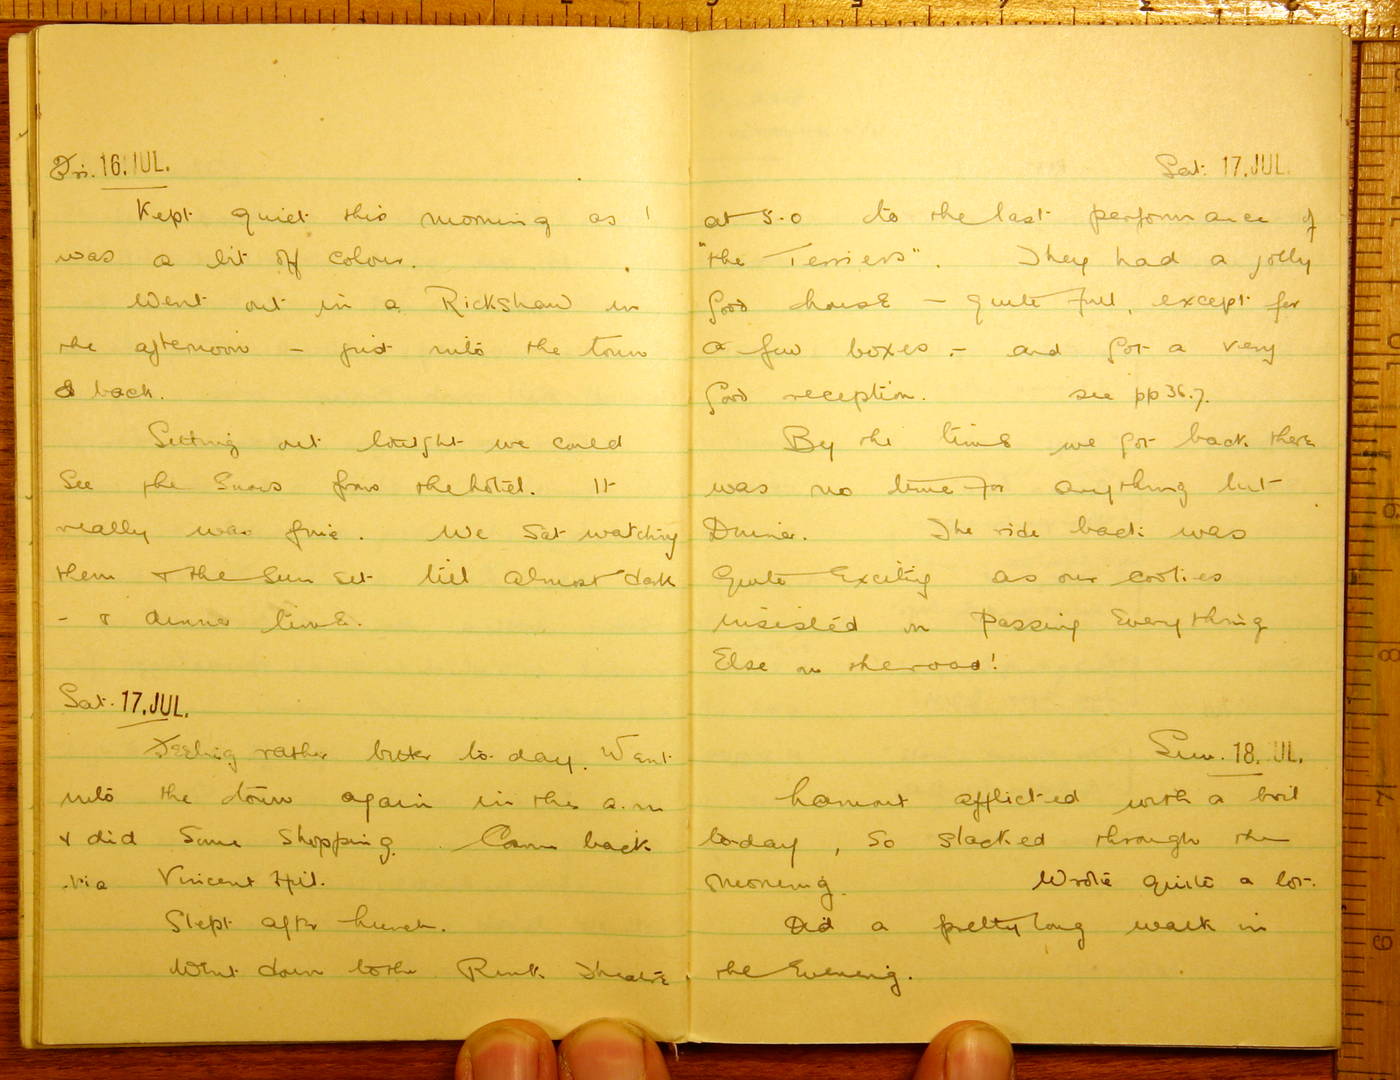 Fri. 16. JUL.
Kept quiet this morning as I
was a bit off colour.
Went out in a Rickshaw in
the afternoon – just into the town
& back.
Sitting out tonight we could
see the Snows from the hotel. It
really was fine. We Sat watching
them & the Sun set till almost dark
- & dinner time.
Sat. 17. JUL.
Feeling rather better to-day. Went
into the town again in the a.m
& did Some Shopping. Came back
via Vincent Hill.
Slept after lunch.
Went down to the Rink Theatre
Sat. 17. JUL.
at 5.0 to the last performance of
"the Terriers". They had a jolly
good house – quite full, except for
a few boxes – and got a very
good reception. see pp 36.7.
By the time we got back there
was no time for anything but
Dinner. The ride back was
Quite Exciting as our coolies
insisted on Passing Everything
Else on the road!
Sun. 18. JUL.
afflicted with a boil
to-day, So slacked through the
morning. Wrote quite a lot.
Did a pretty long walk in
the Evening.